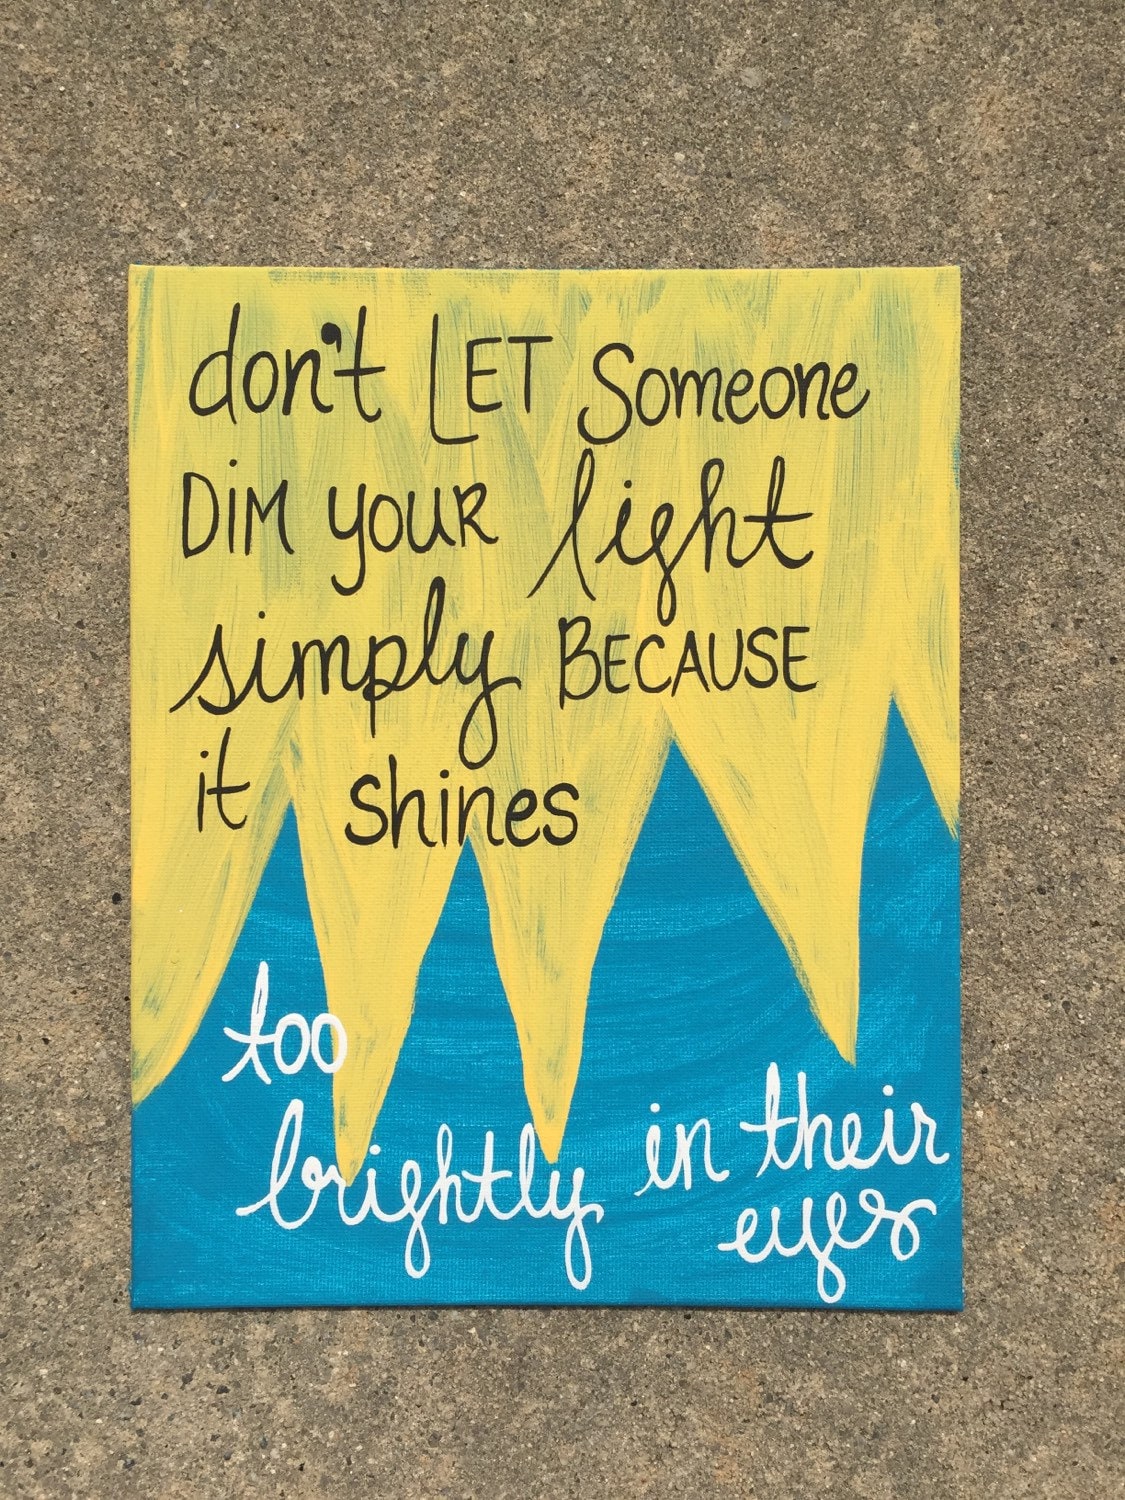 don't LET Someone
DiM YOUR light
simply BECAUSE
it shines
too
brightly in their
eyes